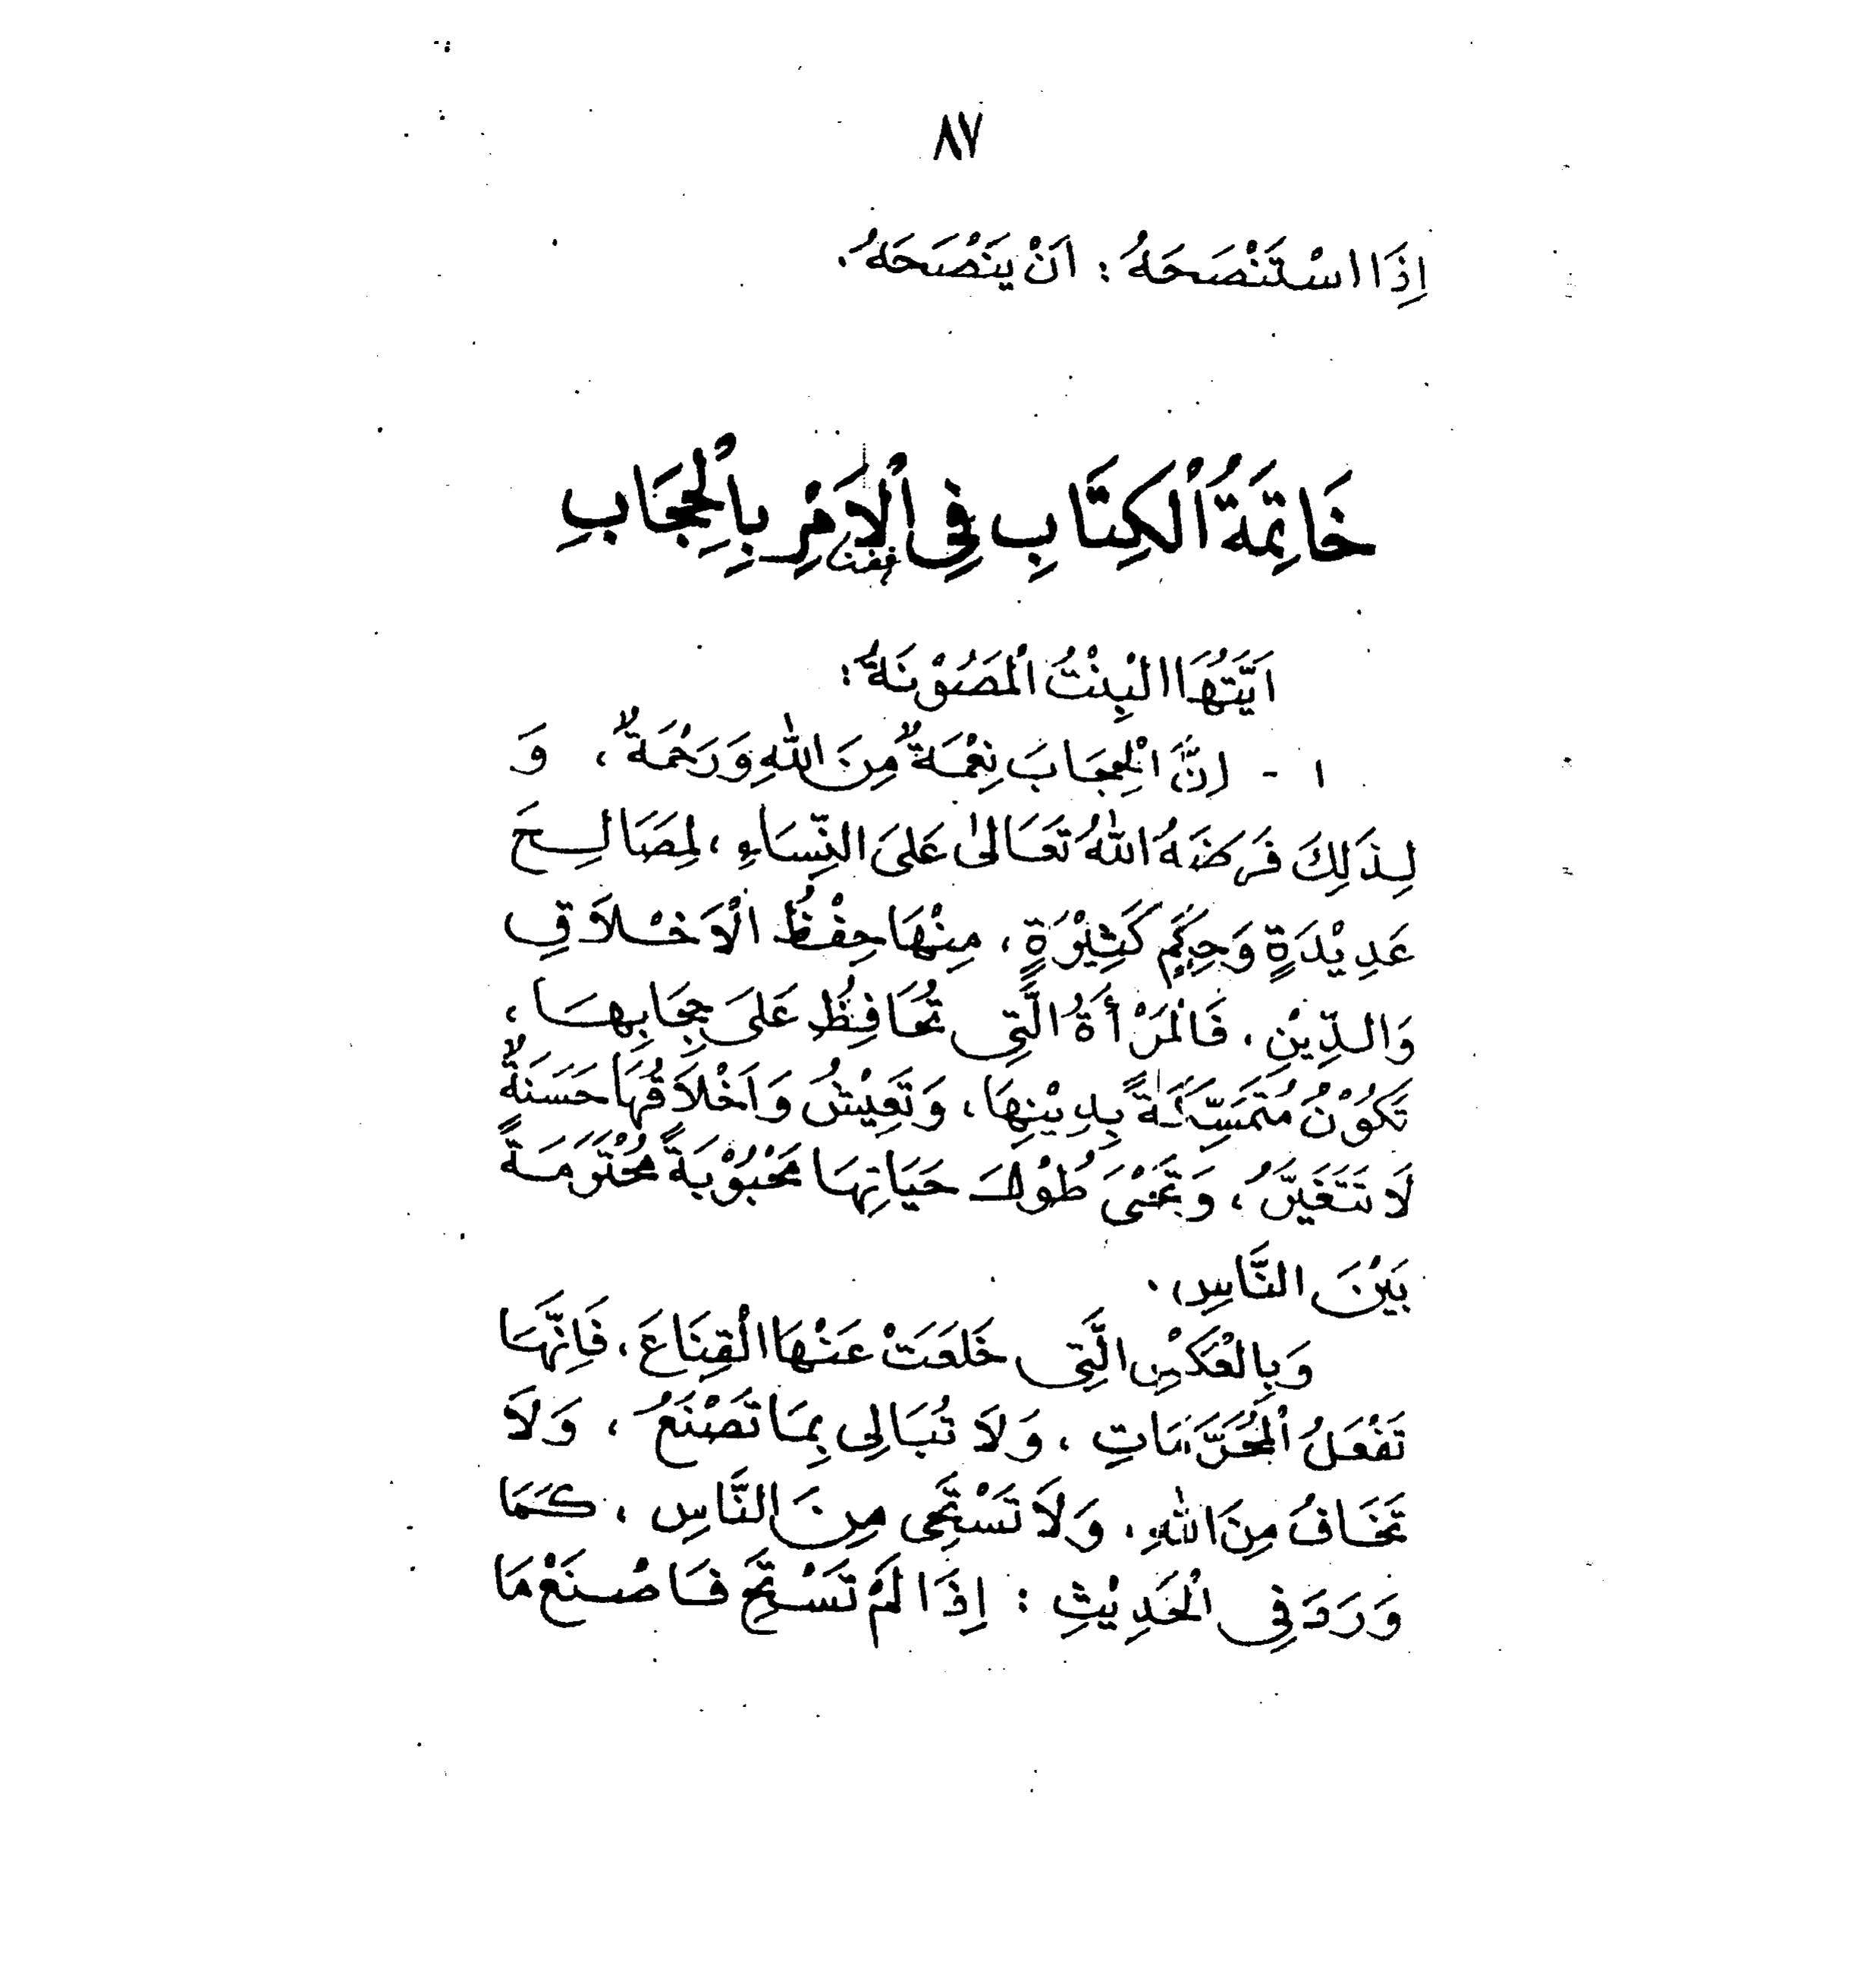 ٨٧
اِذَا اسْتَنْصَحَهُ : اَنْ يَنْصَحَهُ .
خَاتِمَةُ الْكِتَابِ فِى الْاَمْرِ بِالْحِجَابِ
اَيَّتُهَا الْبِنْتُ الْمَصُوْنَةُ :
١ - اِنَّ الْحِجَابَ نِعْمَةٌ مِنَ اللّٰهِ وَرَحْمَةٌ ، وَ
لِذَلِكَ فَرَضَهُ اللّٰهُ تَعَالىٰ عَلَى النِّسَاءِ ، لِمَصَالِحَ
عَدِيْدَةٍ وَحِكَمٍ كَثِيْرَةٍ ، مِنْهَا حِفْظُ الْاَخْلَاقِ
وَالدِّيْنِ ، فَالْمَرْأَةُ الَّتِى تُحَافِظُ عَلَى حِجَابِهَا ،
تَكُوْنُ مُتَمَسِّكَةً بِدِيْنِهَا ، وَتَعِيْشُ وَاَخْلَاقُهَا حَسَنَةٌ
لَا تَتَغَيَّرُ ، وَتَحْيَى طُوْلَ حَيَاتِهَا مَحْبُوْبَةً مُحْتَرَمَةً
بَيْنَ النَّاسِ .
وَبِالْعَكْسِ الَّتِى خَلَعَتْ عَنْهَا الْقِنَاعَ ، فَاِنَّهَا
تَفْعَلُ الْمُحَرَّمَاتِ ، وَلَا تُبَالِى بِمَا تَصْنَعُ ، وَلَا
تَخَافُ مِنَ اللّٰهِ ، وَلَا تَسْتَحِى مِنَ النَّاسِ ، كَمَا
وَرَدَ فِى الْحَدِيْثِ : اِذَا لَمْ تَسْتَحِ فَاصْنَعْ مَا